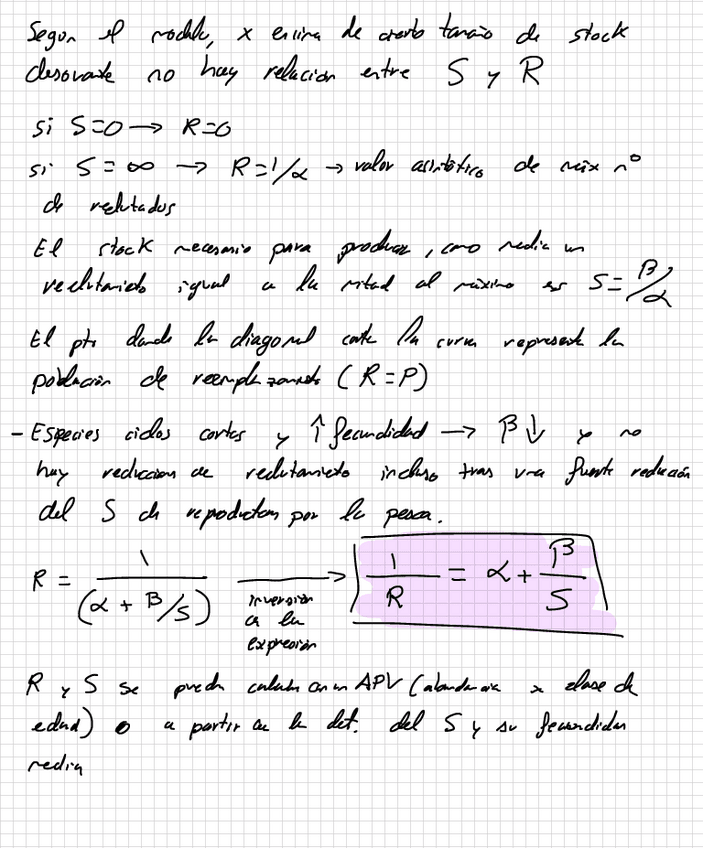 Según el modelo, x encima de cierto tamaño de stock
desovante no hay relación entre S y R
si S=0 → R=0
si S = ∞ → R=1/α → valor asintótico de máx nº
de reclutados
El stock necesario para producir, como media un
reclutamiento igual a la mitad al máximo es S = β/α
El pto donde la diagonal corta la curva representa la
población de reemplazamiento (R=P)
- Especies ciclos cortos y ↑ fecundidad → β↓ y no
hay reducción de reclutamiento incluso tras una fuerte reducción
del S de reproductores por la pesca.
R = 1/(α + β/S) → inversión a la expresión → 1/R = α + β/S
R y S se pueden calcular con un APV (abundancia x clase de
edad) o a partir de la det. del S y su fecundidad
media